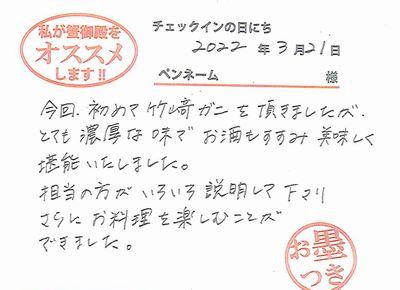 私が蟹御殿を
オススメ
します!!
チェックインの日にち
2022年3月21日
ペンネーム 様
今回、初めて竹崎ガニを頂きましたが、
とても濃厚な味でお酒もすすみ美味しく
堪能いたしました。
担当の方がいろいろ説明して下さり
さらにお料理を楽しむことが
できました。
お墨
つき